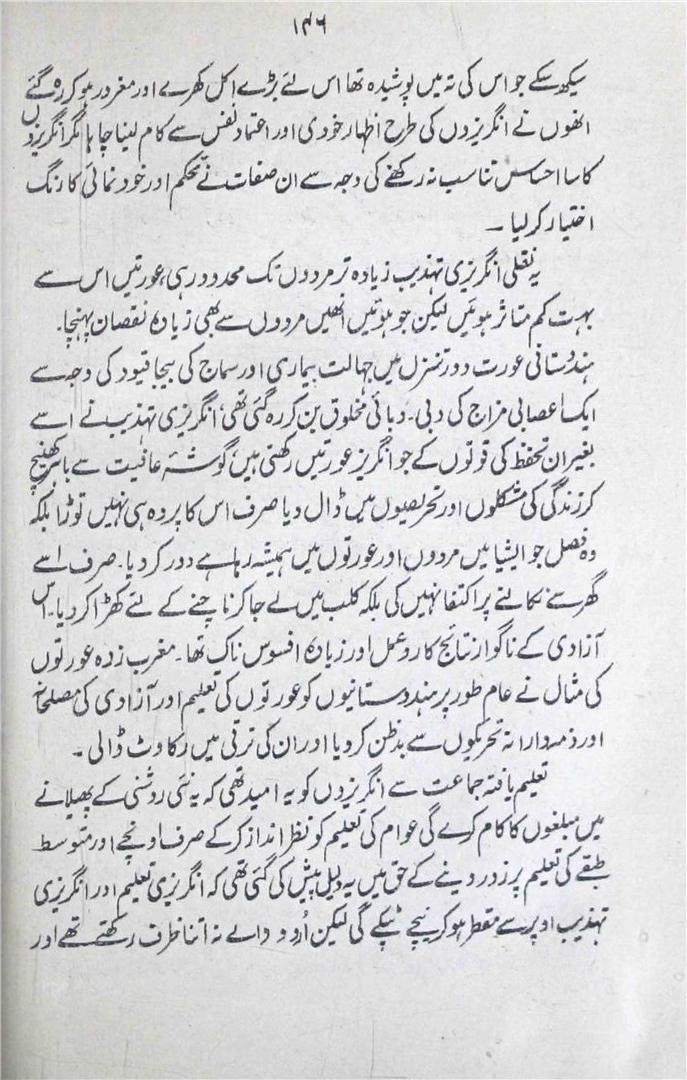 ۱۴۶
سیکھ سکے جو اس کی تہ میں پوشیدہ تھا اس لئے بڑے اکل کھرے اور مغرور ہو کر رہ گئے
انھوں نے انگریزوں کی طرح اظہار خودی اور اعتماد نفس سے کام لینا چاہا مگر انگریزوں
کا سا احساس تناسب نہ رکھنے کی وجہ سے ان صفات نے تحکم اور خود نمائی کا رنگ
اختیار کر لیا ۔
یہ نقلی انگریزی تہذیب زیادہ تر مردوں تک محدود رہی، عورتیں اس سے
بہت کم متاثر ہوئیں لیکن جو ہوئیں انھیں مردوں سے بھی زیادہ نقصان پہنچا۔
ہندوستانی عورت دور تنزل میں جہالت بیماری اور سماج کی بیجا قیود کی وجہ سے
ایک اعصابی مزاج کی دبی۔ دبائی مخلوق بن کر رہ گئی تھی، انگریزی تہذیب نے اسے
بغیر ان تحفظ کی قوتوں کے جو انگریز عورتیں رکھتی ہیں، گوشۂ عافیت سے باہر کھینچ
کر زندگی کی مشکلوں اور تحریصوں میں ڈال دیا صرف اس کا پردہ ہی نہیں توڑا بلکہ
وہ فصل جو ایشیا میں مردوں اور عورتوں میں ہمیشہ رہا ہے دور کر دیا۔ صرف اسے
گھر سے نکالنے پر اکتفا نہیں کی بلکہ کلب میں لے جا کر ناچنے کے لئے کھڑا کر دیا۔ اس
آزادی کے ناگوار نتائج کا رد عمل اور زیادہ افسوس ناک تھا۔ مغرب زدہ عورتوں
کی مثال نے عام طور پر ہندوستانیوں کو عورتوں کی تعلیم اور آزادی کی مصلحانہ
اور ذمہ دارانہ تحریکوں سے بدظن کر دیا اور ان کی ترقی میں رکاوٹ ڈالی ۔
تعلیم یافتہ جماعت سے انگریزوں کو یہ امید تھی کہ یہ نئی روشنی کے پھیلانے
میں مبلغوں کا کام کرے گی عوام کی تعلیم کو نظر انداز کر کے صرف اونچے اور متوسط
طبقے کی تعلیم پر زور دینے کے حق میں یہ دلیل پیش کی گئی تھی کہ انگریزی تعلیم اور انگریزی
تہذیب اوپر سے مقطر ہو کر نیچے ٹپکے گی لیکن اُردو والے نہ اتنا ظرف رکھتے تھے اور